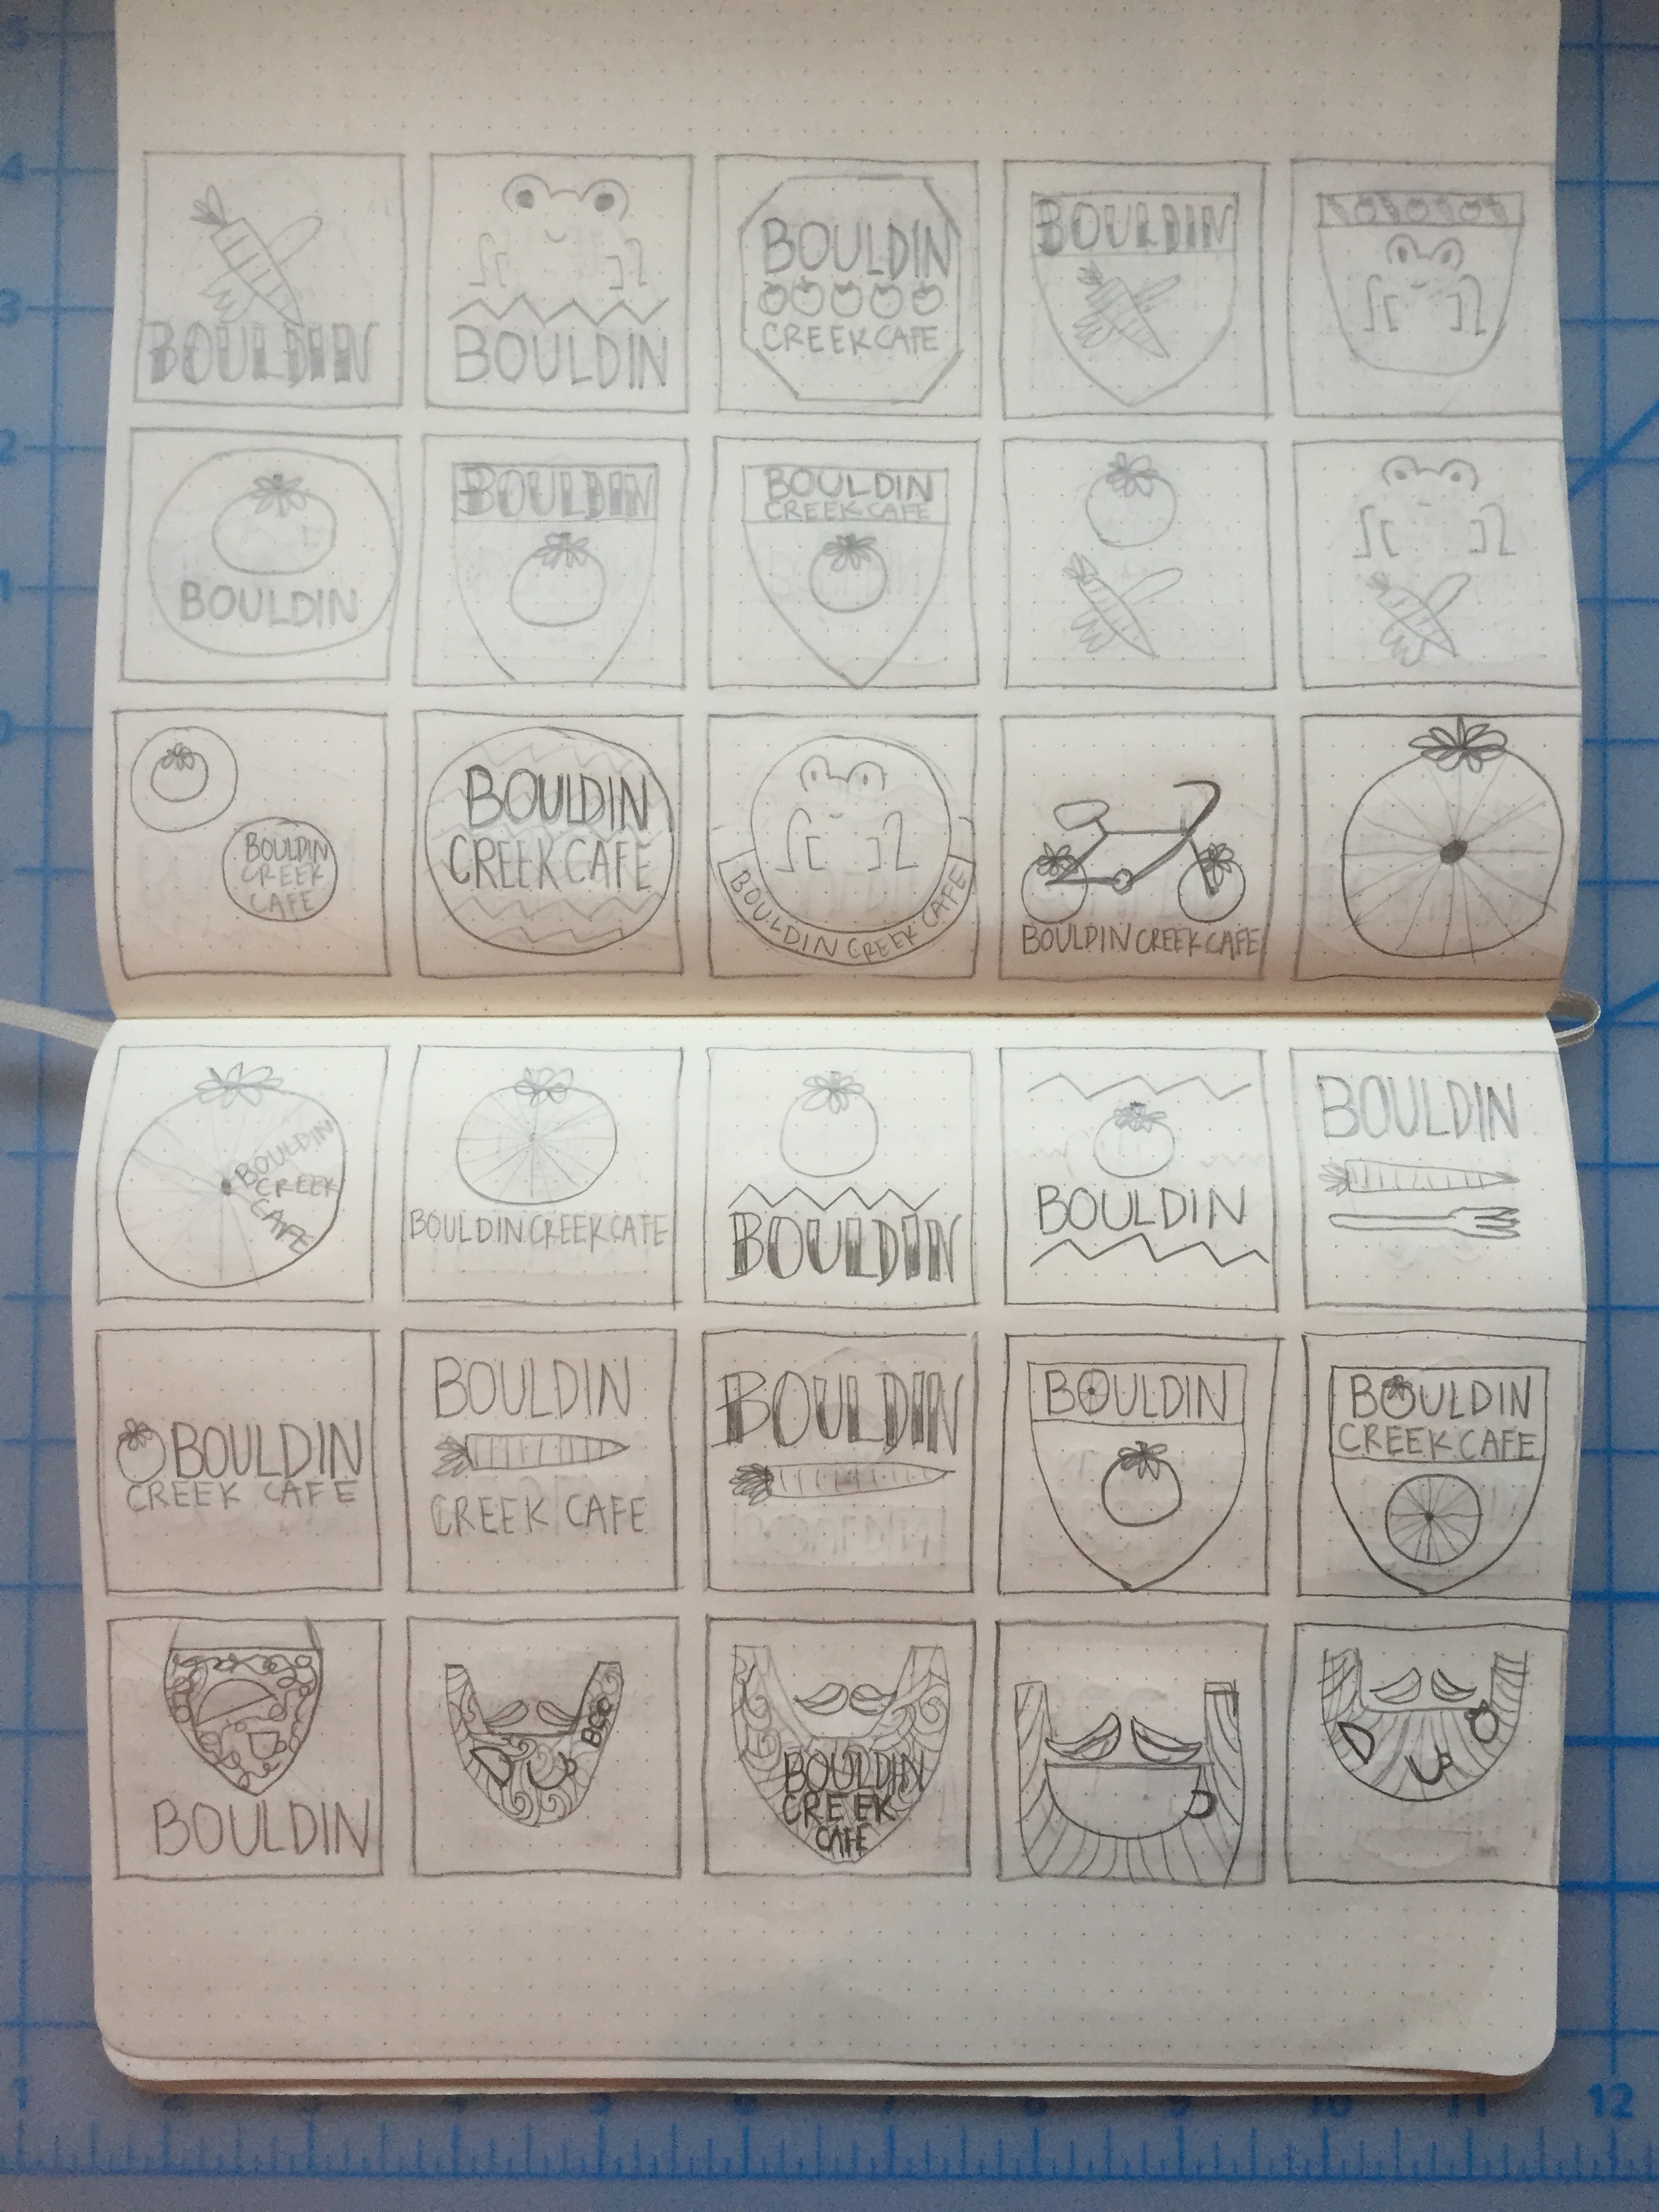 5
4
3
2
1
0
BOULDIN
BOULDIN
BOULDIN
CREEK CAFE
BOULDIN
BOULDIN
BOULDIN
BOULDIN
CREEK CAFE
BOULDIN
CREEK
CAFE
BOULDIN
CREEK CAFE
BOULDIN CREEK CAFE
BOULDIN CREEK CAFE
BOULDIN
CREEK
CAFE
BOULDIN CREEK CAFE
BOULDIN
BOULDIN
BOULDIN
BOULDIN
CREEK CAFE
BOULDIN
CREEK CAFE
BOULDIN
BOULDIN
BOULDIN
CREEK CAFE
BOULDIN
BCC
BOULDIN
CREEK
CAFE
1
2
5
6
7
8
9
10
11
12